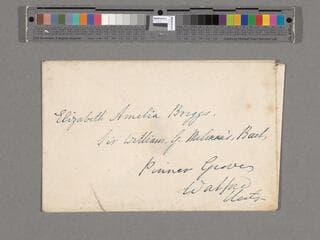 Elizabeth Amelia Briggs.
Sir William, G. Milman's, Bart,
Pinner Grove,
Watford
Herts.